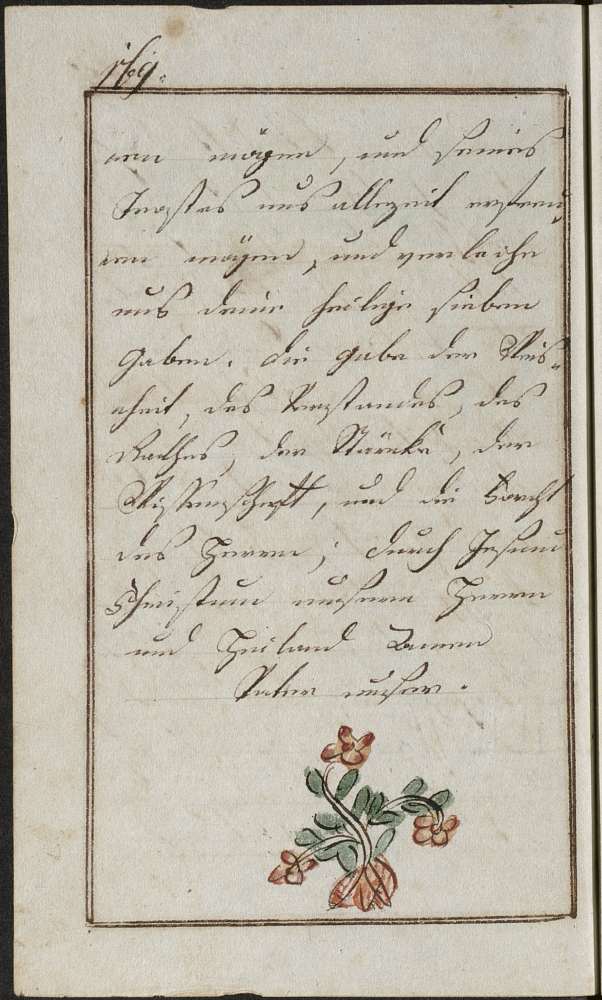 169.
nen mögen, und seines
Trostes uns allezeit erfreu¬
nen mögen, und verleihe
uns deine heilige sieben
Gaben. die gabe der Weis¬
cheit, des Verstandes, des
Rathes, der Stärcke, der
Wissenschaft, und die Forcht
des Herren; durch Jesum
Christum unseren Herren
und Heiland Aamen
Vater unser.